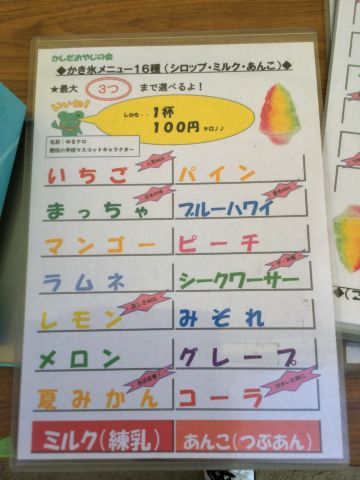 かしだおやじの会
◆かき氷メニュー16種(シロップ・ミルク・あんこ)◆
★最大 3つ まで選べるよ!
いいね!
しかも・・ 1杯
100円 ケロ♪♪
名前:ゆるケロ
樫田小学校マスコットキャラクター
いちご パイン
人気NO1
まっちゃ ブルーハワイ
日本の味
マンゴー ピーチ
ラムネ シークワーサー
ザ・沖縄
レモン みぞれ
メロン グレープ
夏みかん コーラ
ミルク(練乳) あんこ(つぶあん)